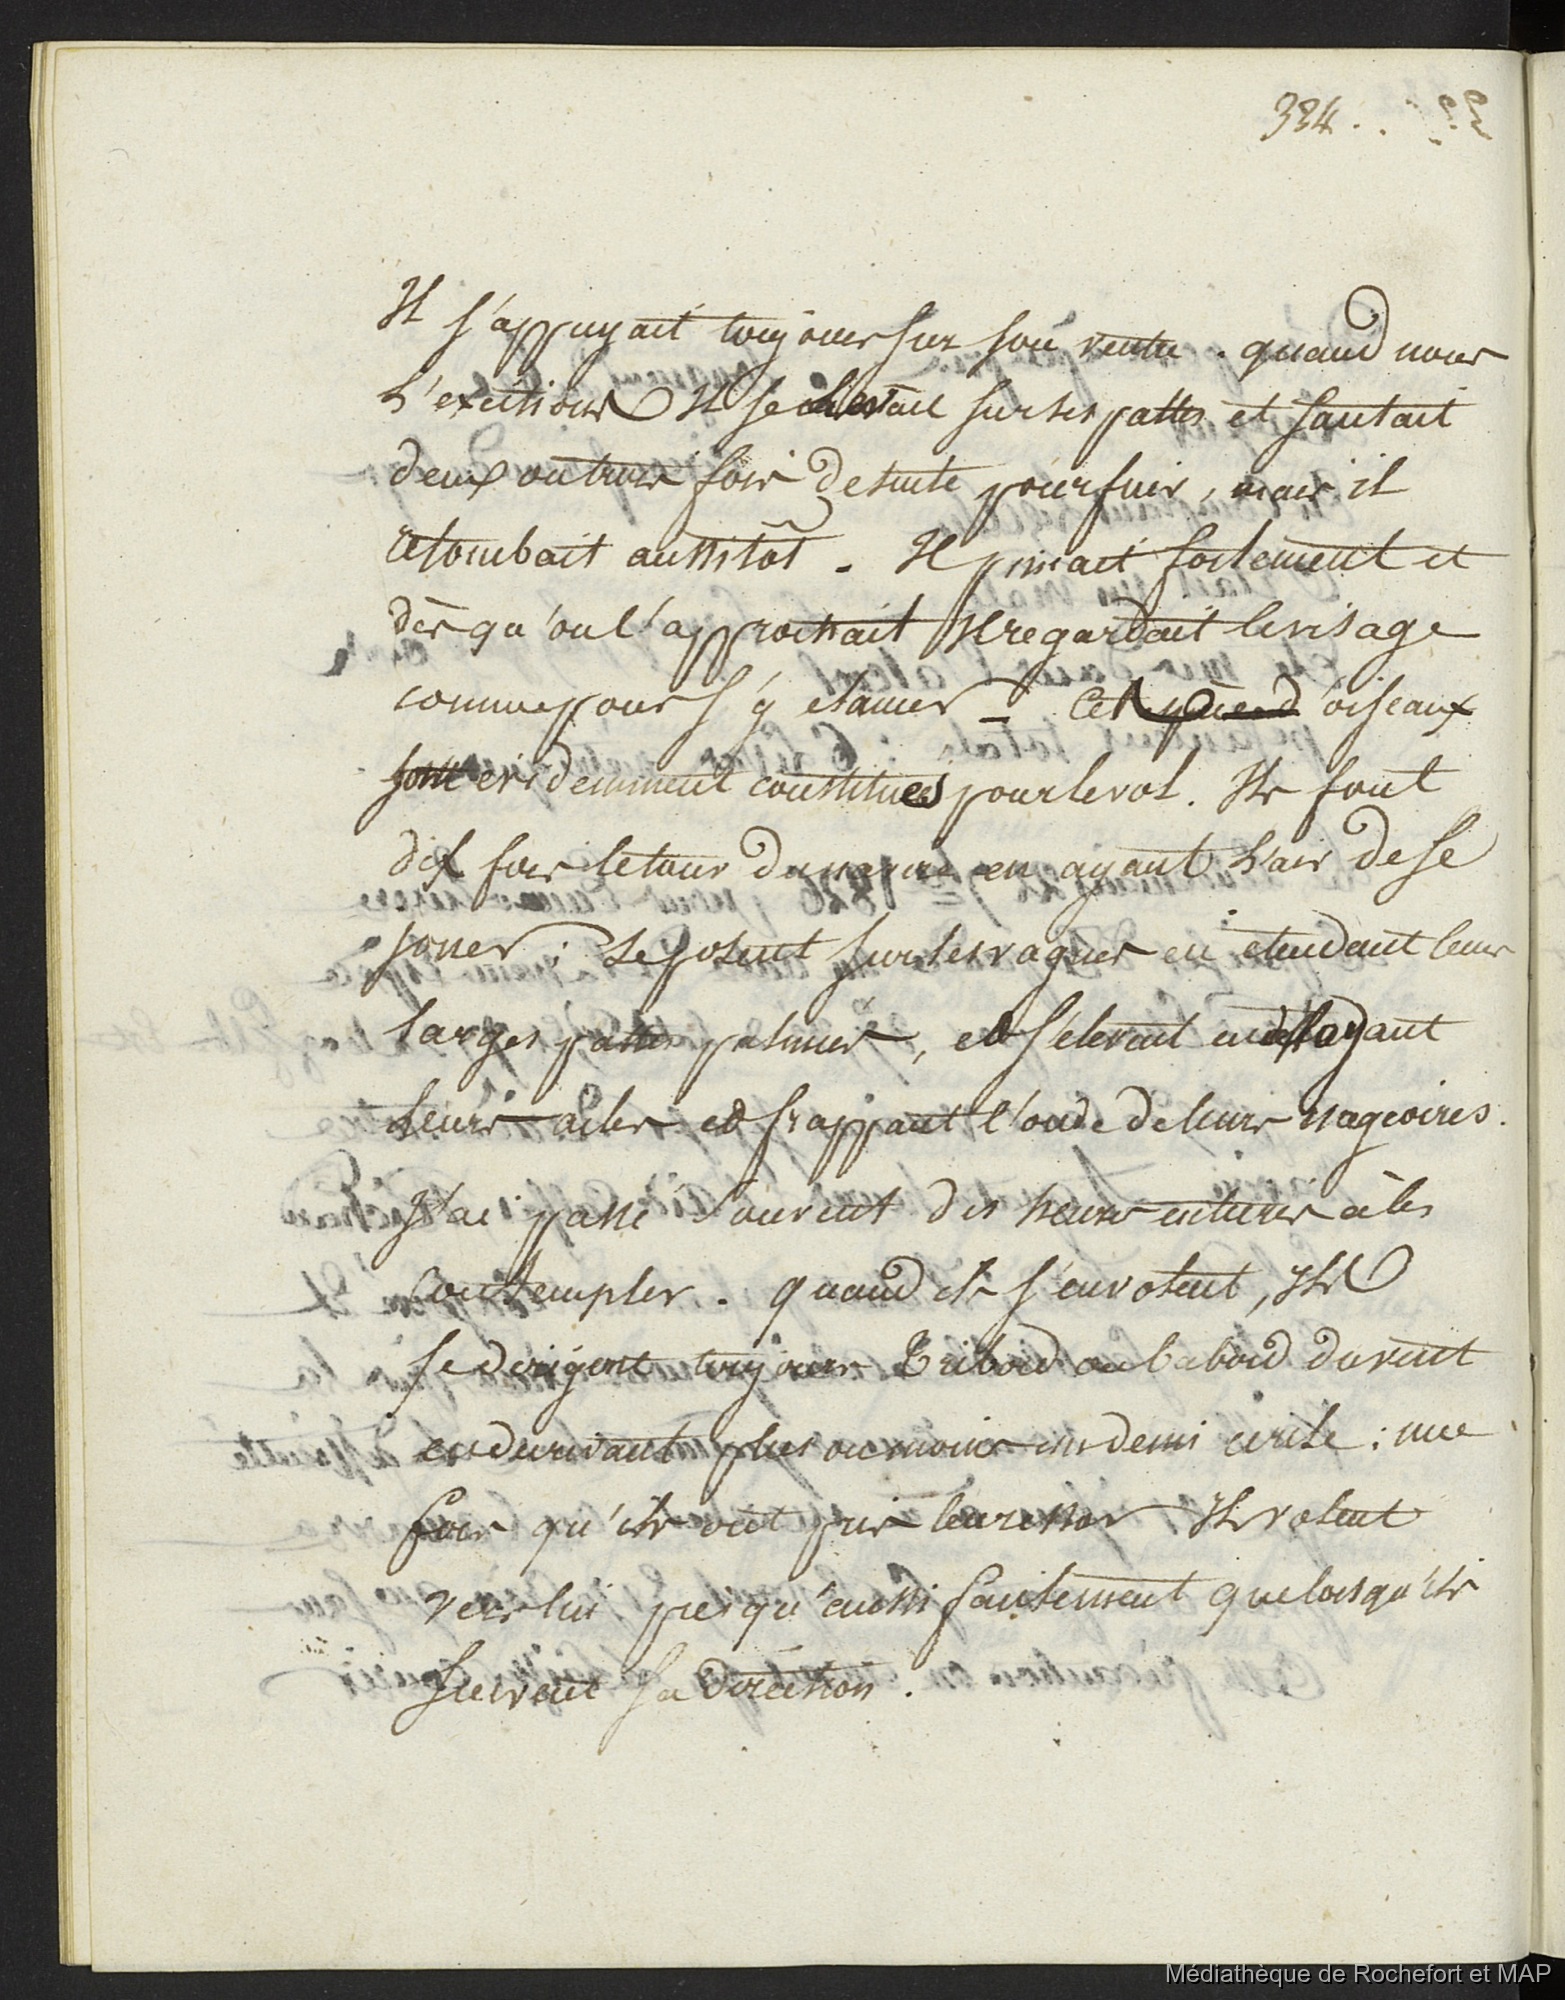 334.
Il s'appuyait toujours sur son ventre. quand nous
l'excitions Il se elevait sur ses pattes et sautait
deux ou trois fois de suite pour fuir, mais il
retombait aussitôt. Il pinçait fortement et
dès qu'on l'approchait Il regardait le visage
comme pour s'y elancer - Ces d'oiseaux
sont evidemment constitués pour le vol. Ils font
dix fois le tour du navire en ayant l'air de se
jouer; se posent sur les vagues en etendant leurs
larges pattes palmées, et s'elevent en deployant
leurs ailes et frappant l'onde de leurs nageoires.
J'ai passé souvent des heures entieres à les
contempler. quand ils s'envolent, Ils
se dirigent toujours Tribord ou babord du vent
en decrivant plus ou moins un demi cercle; une
fois qu'ils ont pris leur essor Ils volent
vers lui presqu'aussi facilement que lorsqu'ils
suivent sa direction.
Médiathèque de Rochefort et MAP